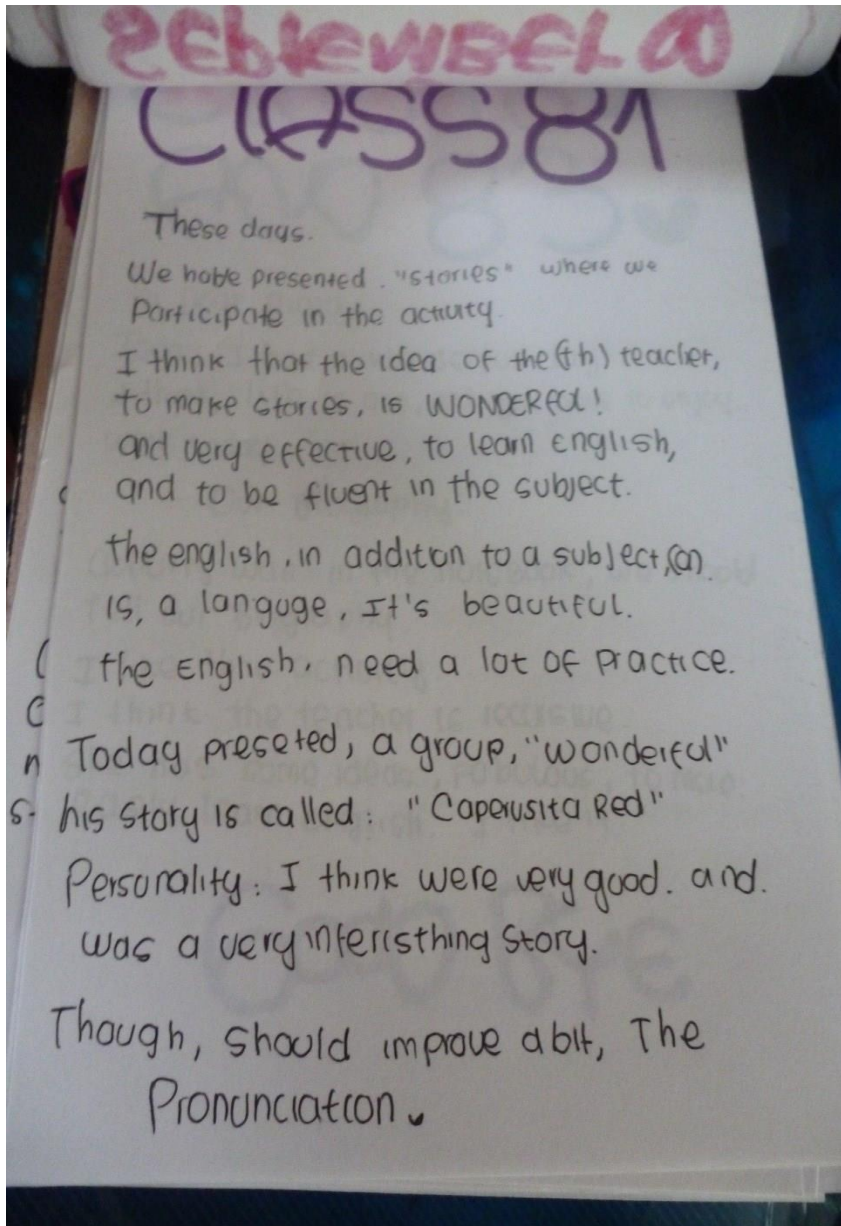 SEPTEMBER
CLASS 81
These days.
We have presented. "stories" where we
Participate in the activity.
I think that the idea of the (th) teacher,
to make stories, is WONDERFUL!
and very effective, to learn English,
and to be fluent in the subject.
the english, in additon to a subject, (a).
Is, a languge, It's beautiful.
the English, need a lot of practice.
Today preseted, a group, "wonderful"
his story is called: "Caperusita Red"
Personality: I think were very good. and.
was a very interisthing story.
Though, should improve a bit, The
Pronunciation.